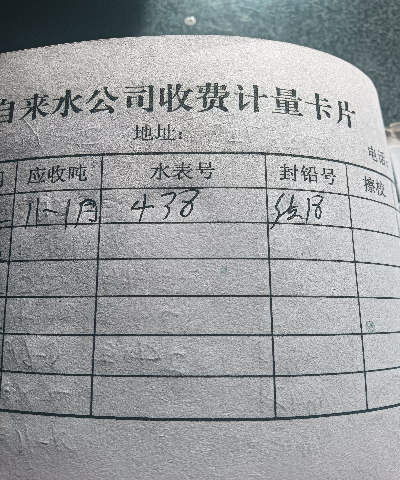 自来水公司收费计量卡片
地址：
电话
应收吨 水表号 封铅号
11~1月 438